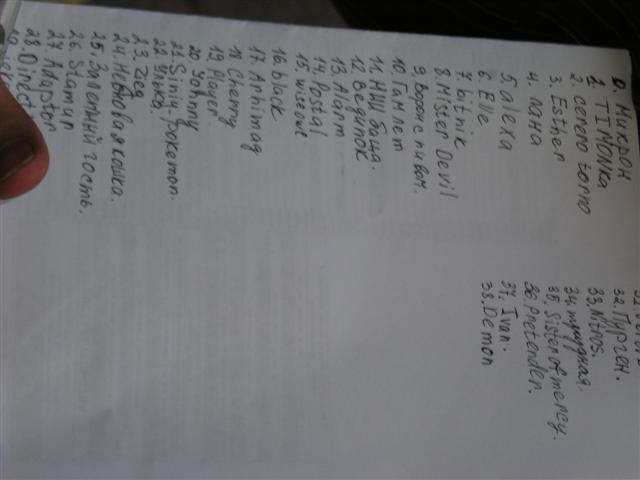 0. Микрон
1. TIMONKA
2. cerero torno
3. Esther
4. лана
5. alexa
6. Elle
7. bitnik
8. Mister Devil
9. Борис пивом.
10. Гамлет
11. НЧШ баща.
12. Ведапок
13. Alarm
14. Postal
15. wiseowl
16. black
17. Arhimag
18. Cherry
19. Player.
20. Johnny
21. Siniy Pokemon.
22. Улька.
23. Zeg
24. Нервовая кошка.
25. Залетный гость.
26. Stamur
27. Adaptor
28. Direct
32. Пурген.
33. Nitros.
34.
35. Sister of mercy.
36. Pretender.
37. Ivan.
38. Demon